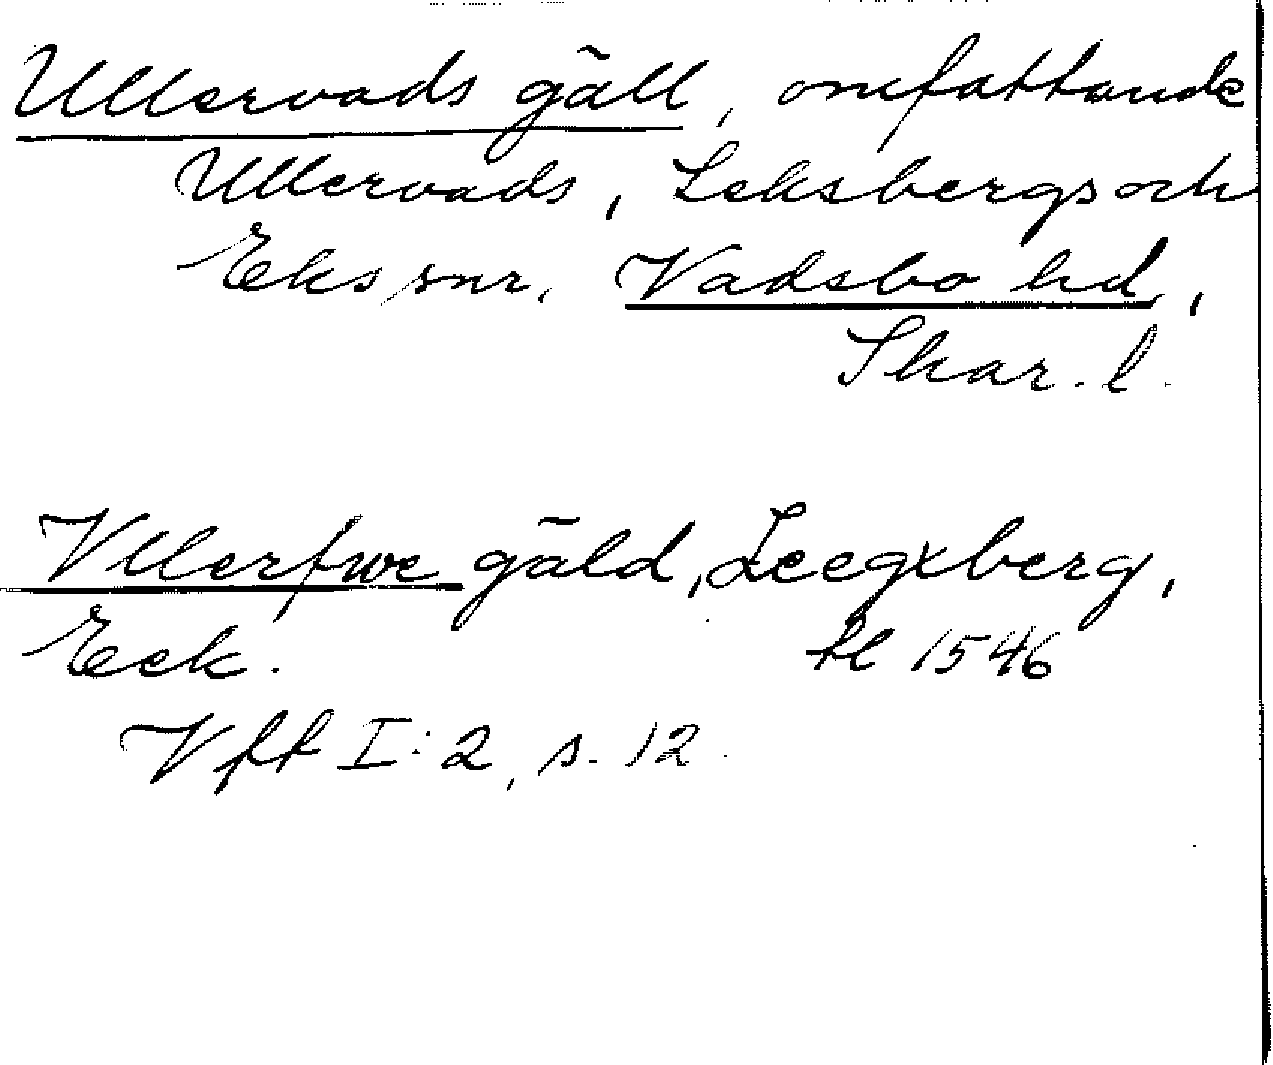 Ullervads gäll, omfattande
Ullervads, Leksbergs och
Eks snr, Vadsbo hd,
Skar. l.
Vllerfwe gäld, Leegxberg,
Eek. fl 1546
Vft I:2, s. 12.